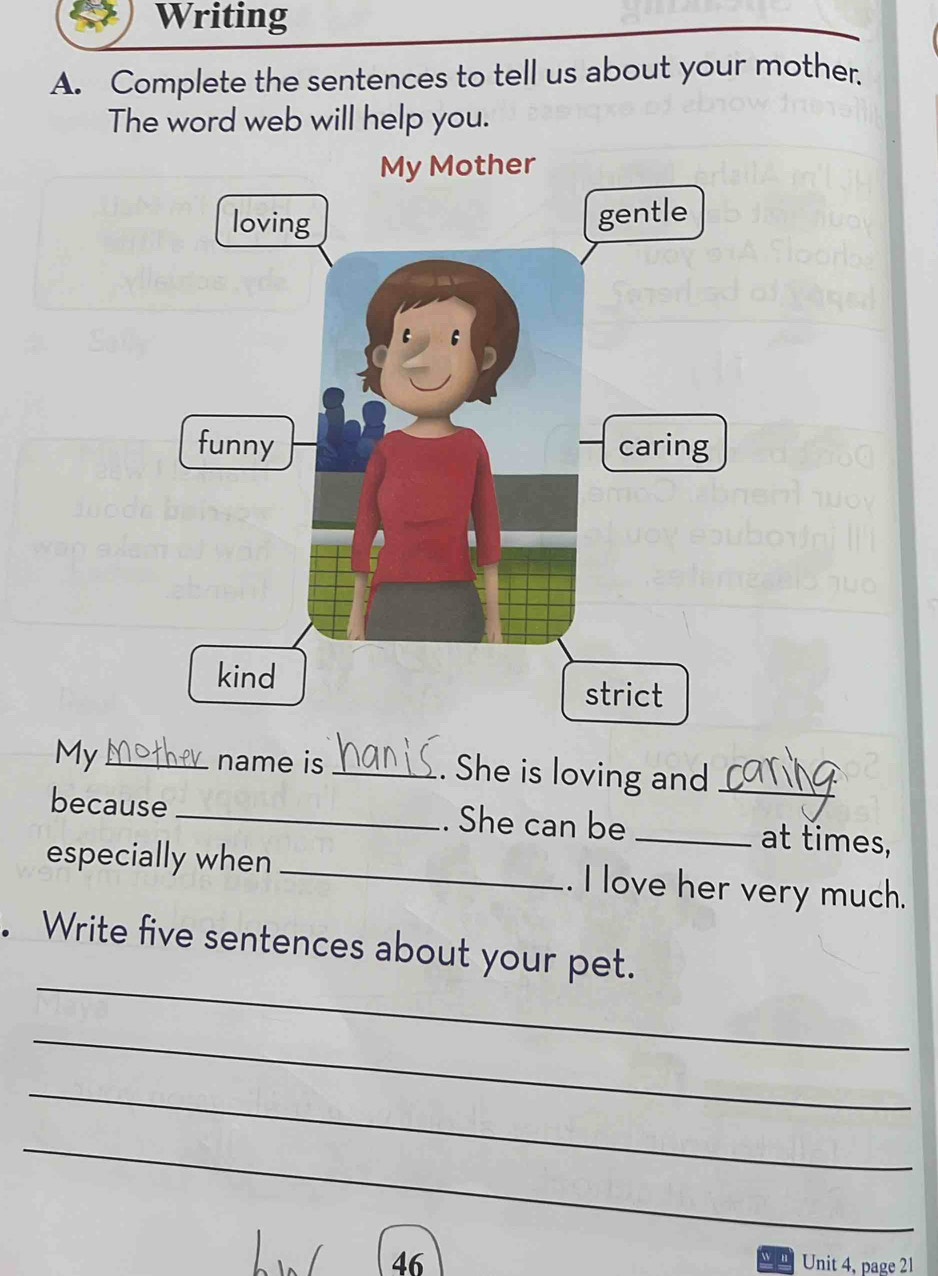 Writing
A. Complete the sentences to tell us about your mother.
The word web will help you.
My Mother
loving
gentle
funny
caring
kind
strict
My Mother name is hanis. She is loving and caring
because ____________. She can be ______ at times,
especially when ____________. I love her very much.
. Write five sentences about your pet.
hw
46
W B Unit 4, page 21